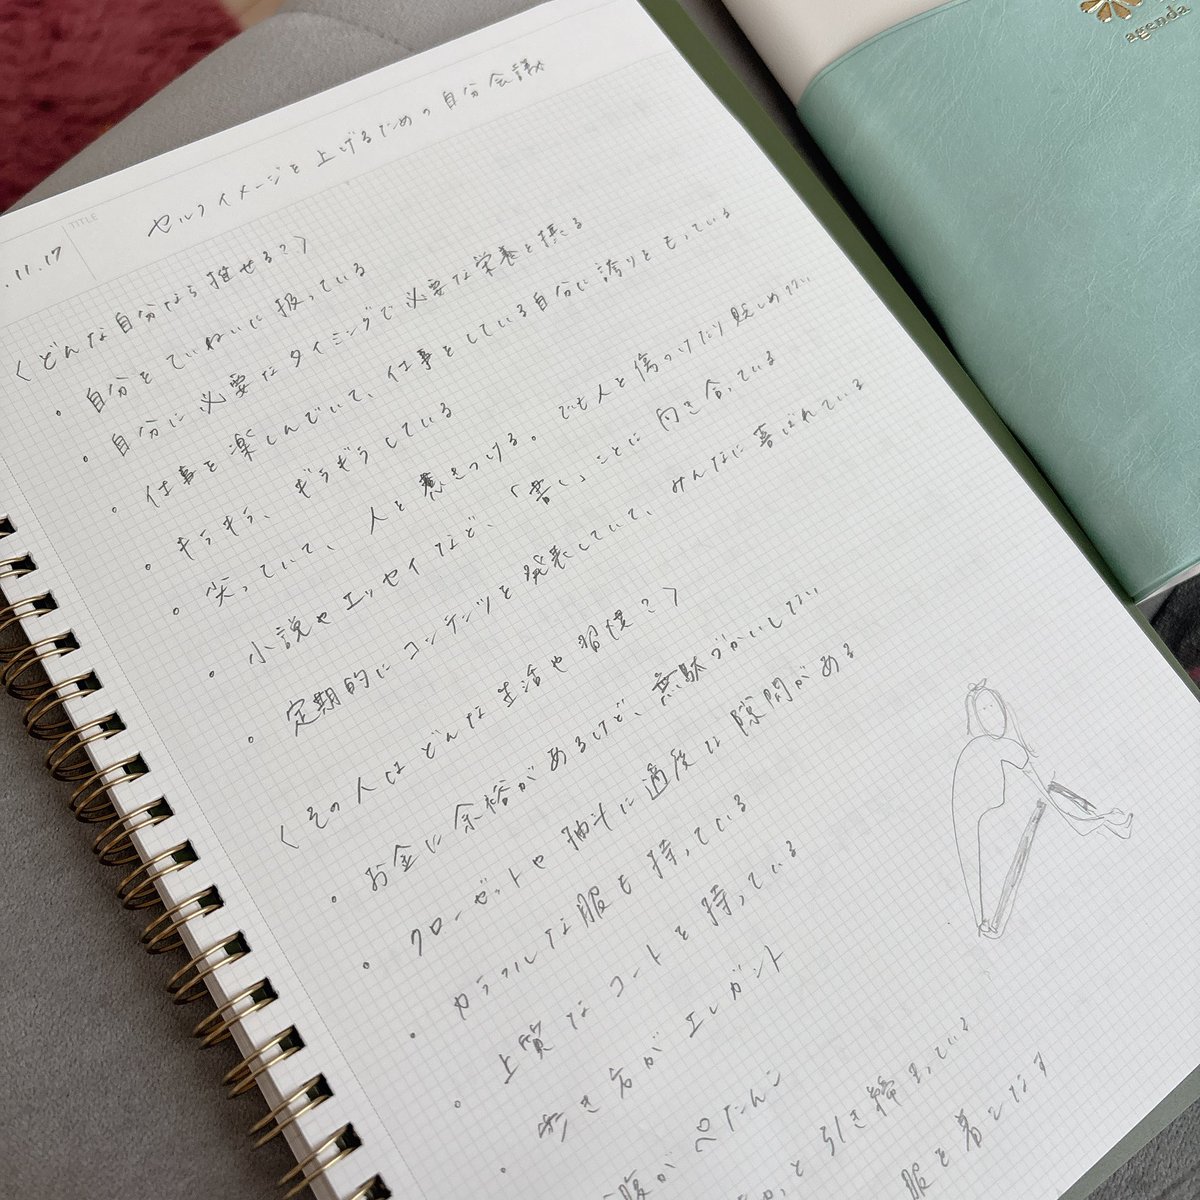 agenda
TITLE
セルフイメージを上げるための自分会議
.11.17
〈どんな自分なら推せる?〉
・自分をていねいに扱っている
・自分に必要なタイミングで必要な栄養を摂る
・仕事を楽しんでいて、仕事をしている自分に誇りをもっている
・キラキラ、ギラギラしている
・尖っていて、人を惹きつける。でも人を傷つけたり貶しめない
・小説やエッセイなど、「書く」ことに向き合っている
・定期的にコンテンツを発表していて、みんなに喜ばれている
〈その人はどんな生活や習慣?〉
・お金に余裕があるけど、無駄づかいしない
・クローゼットや抽斗に適度な隙間がある
・カラフルな服を持っている
・上質なコートを持っている
・歩き方がエレガント
腹がぺたんこ
と引き締まっている
服を着こなす